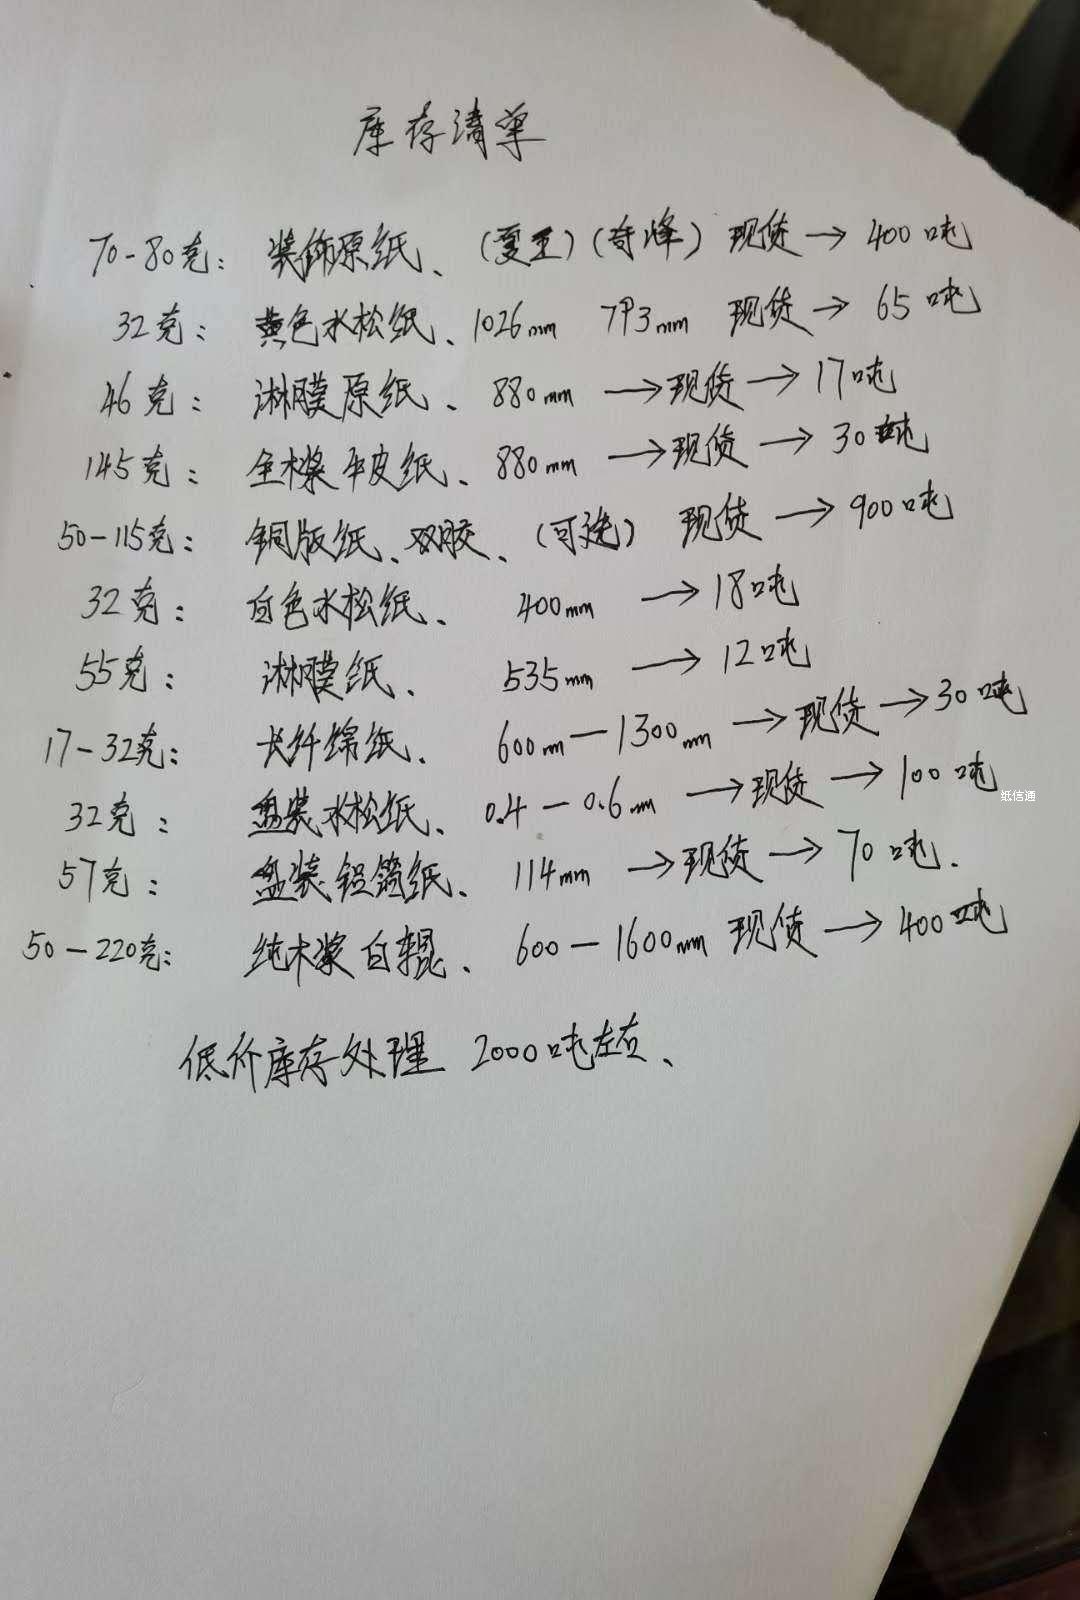 库存清单
70-80克: 装饰原纸、(夏王)(奇峰) 现货→400吨
32克: 黄色水松纸、1026mm 793mm 现货→65吨
46克: 淋膜原纸、880mm→现货→17吨
145克: 全木浆牛皮纸、880mm→现货→30吨
50-115克: 铜版纸、双胶、(可选) 现货→900吨
32克: 白色水松纸、400mm→18吨
55克: 淋膜纸、535mm→12吨
17-32克: 长纤绵纸、600m-1300mm→现货→30吨
32克: 盘装水松纸、0.4-0.6m→现货→100吨
纸信通
57克: 盘装铝箔纸、114mm→现货→70吨.
50-220克: 纯木浆白辊、600-1600mm 现货→400吨
低价库存处理 2000吨左右、